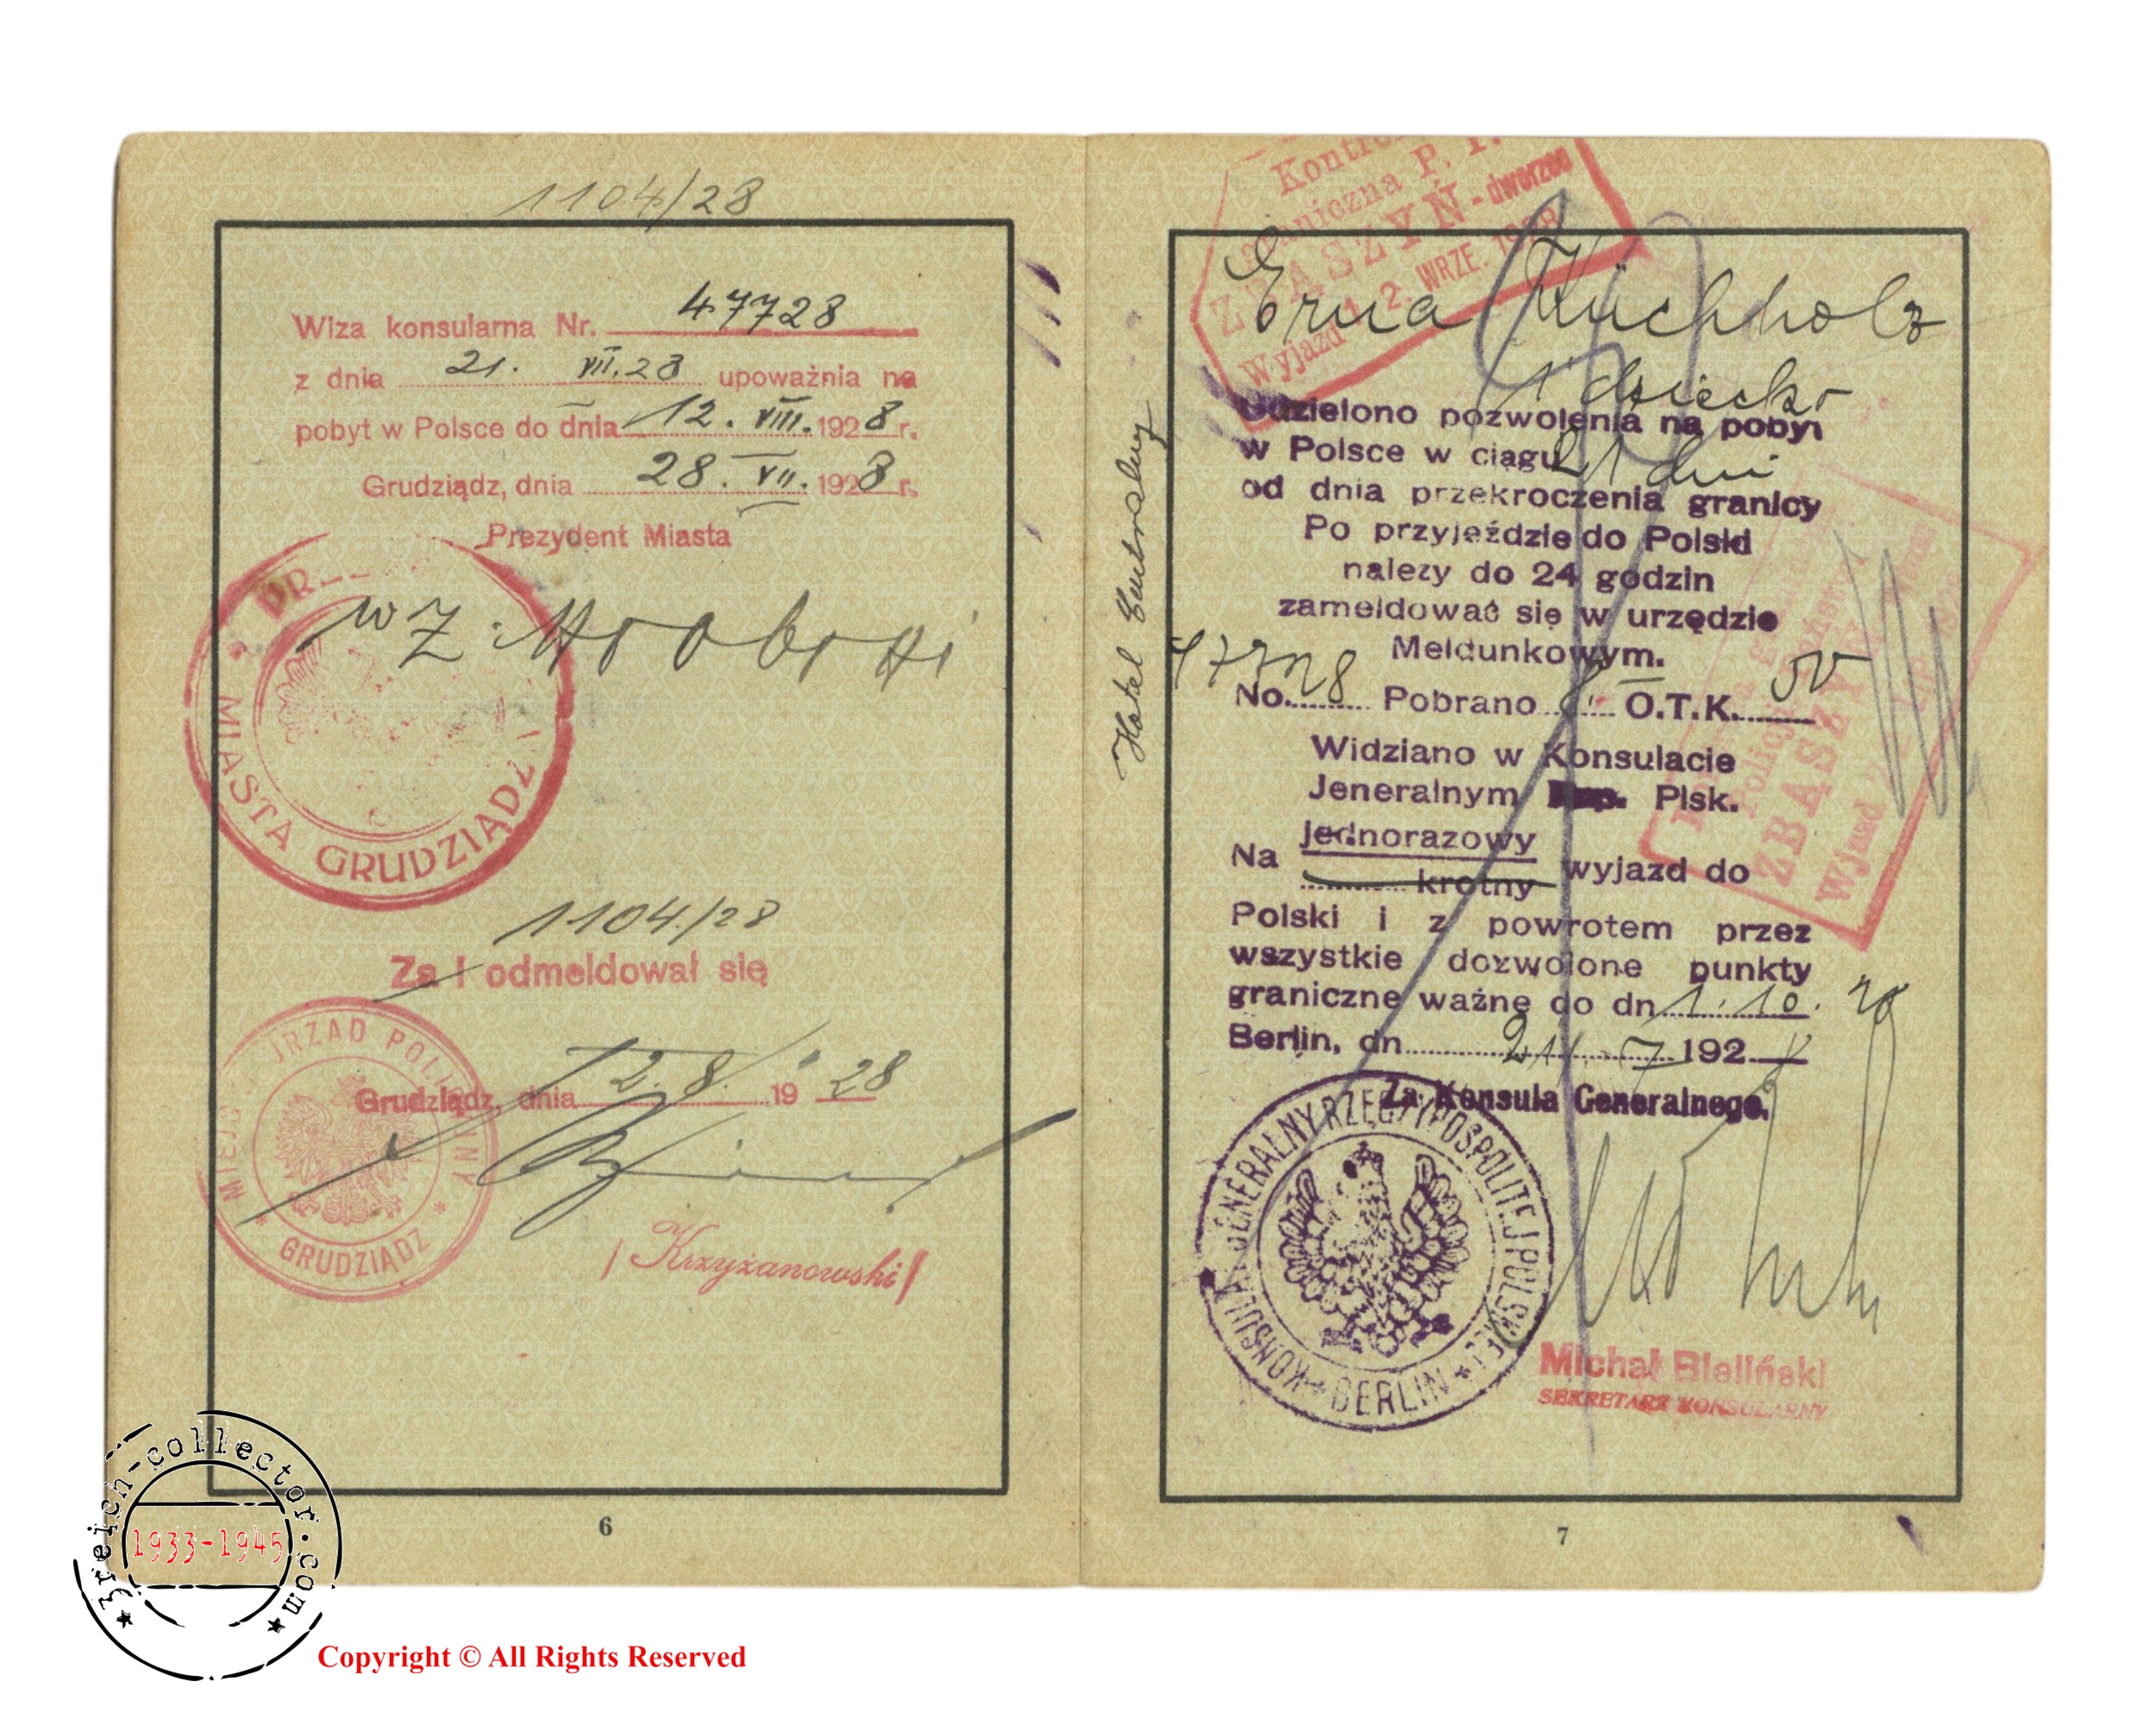 1104/28
Wiza konsularna Nr. 47728
z dnia 21. VII. 28 upoważnia na
pobyt w Polsce do dnia 12. VIII. 1928 r.
Grudziądz, dnia 28. VII. 1928 r.
Prezydent Miasta
MIASTA GRUDZIĄDZ
w Z.
1104/28
Za i odmeldował się
Grudziądz, dnia 12. 8. 19 28
URZĄD POLICYJNY
GRUDZIĄDZ
/Krzyżanowski/
6
Hotel
ZBĄSZYŃ-dworzec
Wyjazd 12. WRZE. 1928
Erna Küchholz
1 dziecko
Udzielono pozwolenia na pobyt
w Polsce w ciągu 21 dni
od dnia przekroczenia granicy
Po przyjeździe do Polski
należy do 24 godzin
zameldować się w urzędzie
Meldunkowym.
No. 47728 Pobrano 8.- O.T.K.
Widziano w Konsulacie
Jeneralnym Plsk.
Na jednorazowy wyjazd do
krotny
Polski i z powrotem przez
wszystkie dozwolone punkty
graniczne ważne do dn. 1. 10.
Berlin, dn. 21. 7 1928
Za Konsula Generalnego.
ZBĄSZYŃ
Wjazd
KONSULAT GENERALNY RZECZYPOSPOLITEJ POLSKIEJ
BERLIN
Michał Bieliński
SEKRETARZ KONSULARNY
7
3reich-collector.com
1933-1945
Copyright © All Rights Reserved